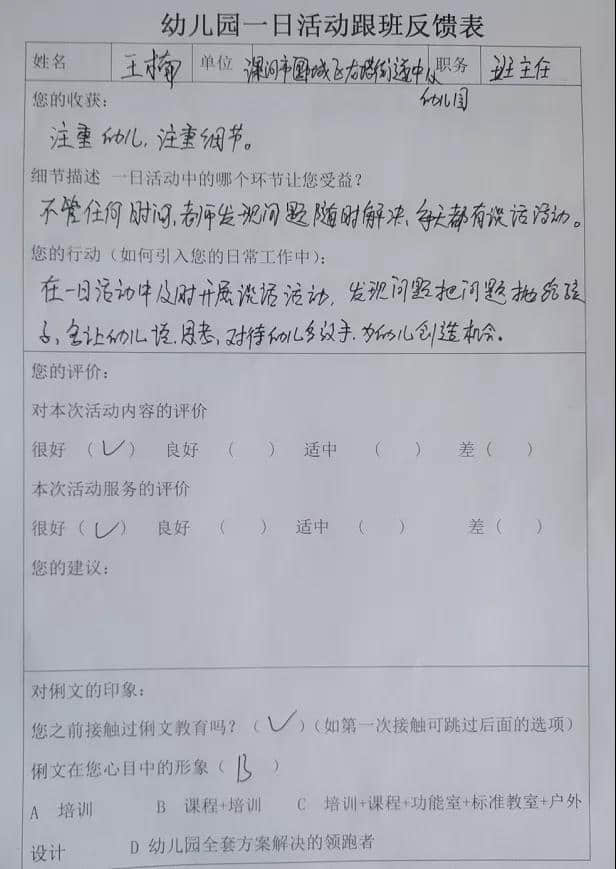 幼儿园一日活动跟班反馈表
姓名 王楠 单位 漯河市郾城区 街道 中心 职务 班主任
幼儿园
您的收获：
注重幼儿，注重细节。
细节描述 一日活动中的哪个环节让您受益？
不管任何时间，老师发现问题随时解决，每天都有谈话活动。
您的行动（如何引入您的日常工作中）：
在一日活动中及时开展谈话活动，发现问题把问题抛给孩
子，多让幼儿说，思考，对待幼儿多放手，为幼儿创造机会。
您的评价：
对本次活动内容的评价
很好（✓） 良好（ ） 适中（ ） 差（ ）
本次活动服务的评价
很好（✓） 良好（ ） 适中（ ） 差（ ）
您的建议：
对俐文的印象：
您之前接触过俐文教育吗？（✓）（如第一次接触可跳过后面的选项）
俐文在您心目中的形象（B）
A 培训 B 课程+培训 C 培训+课程+功能室+标准教室+户外
设计 D 幼儿园全套方案解决的领跑者